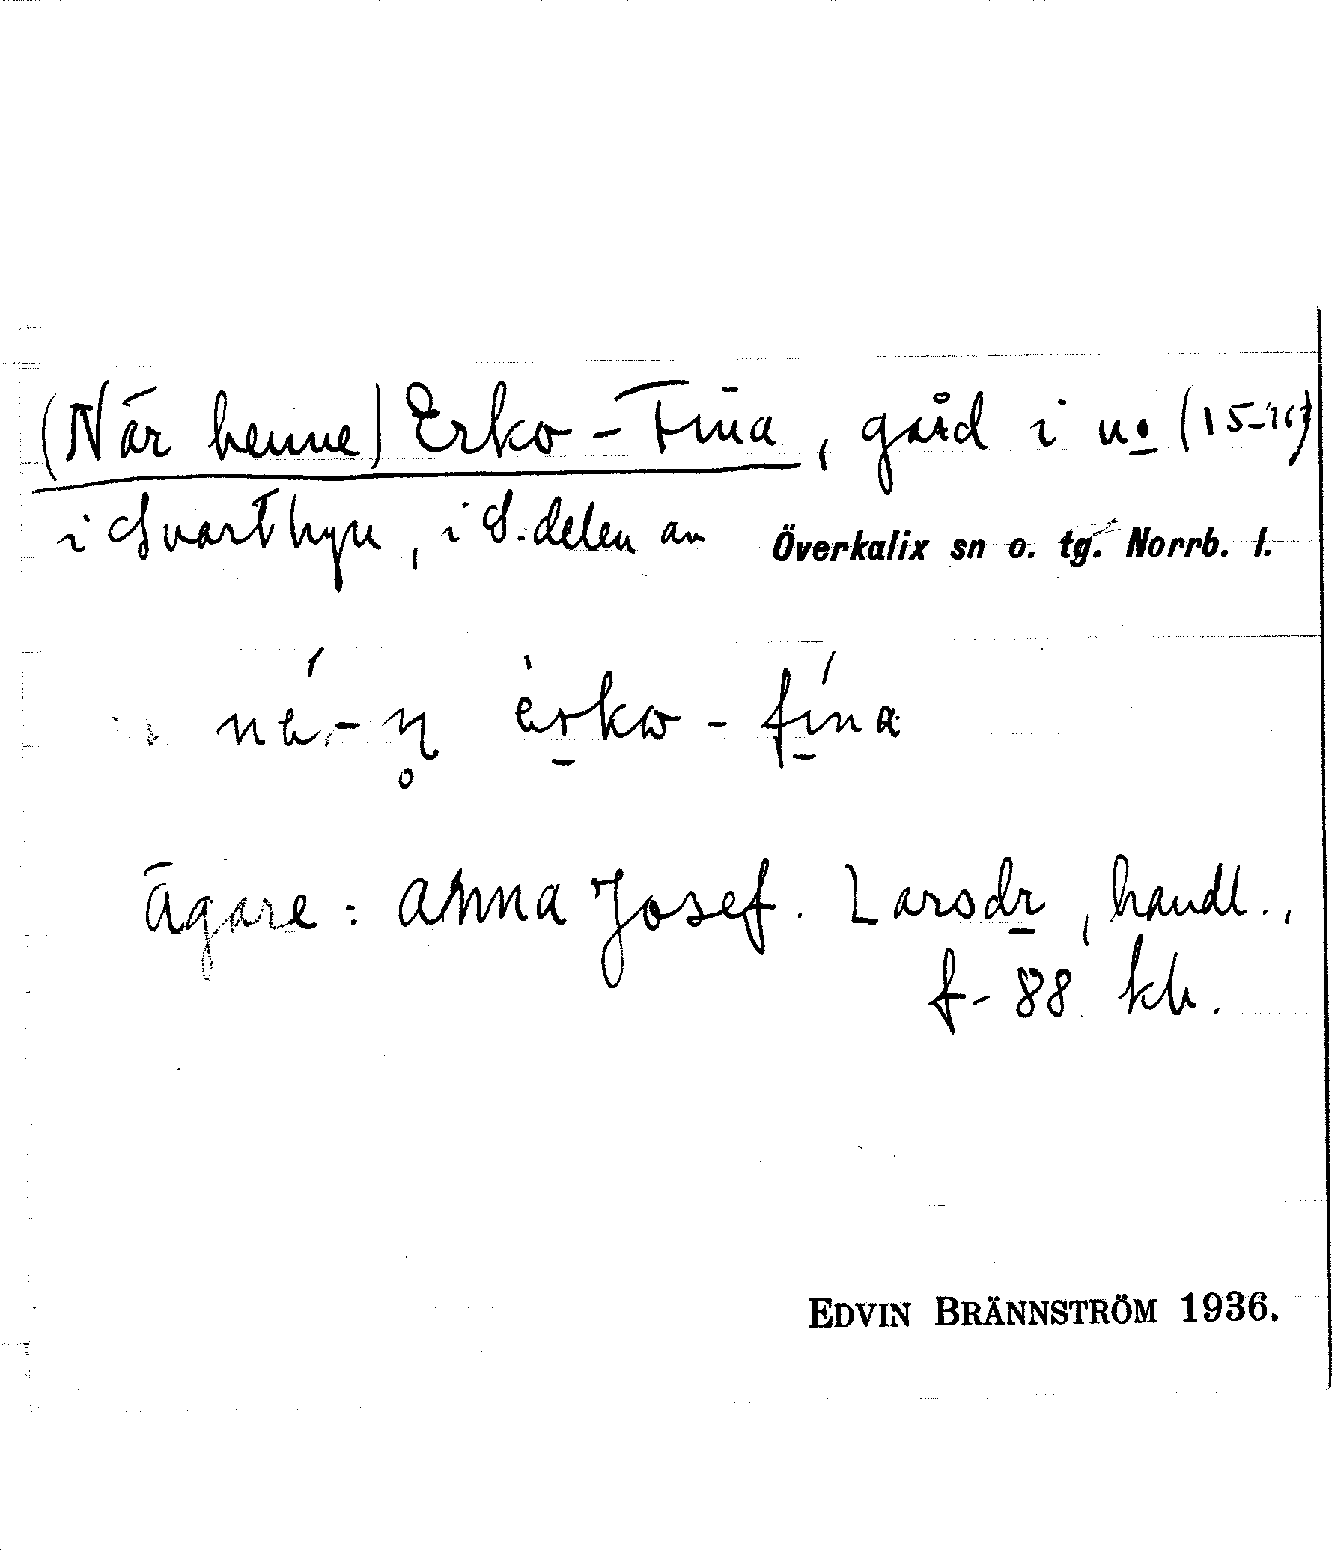 (När henne) Erko-Fina, gård i no (15-16)
i Svartbyn, i S. delen av Överkalix sn o. tg. Norrb. l.
érko-fína
ägare: Anna Josef. Larsdr, handl.,
f-88 kb.
EDVIN BRÄNNSTRÖM 1936.